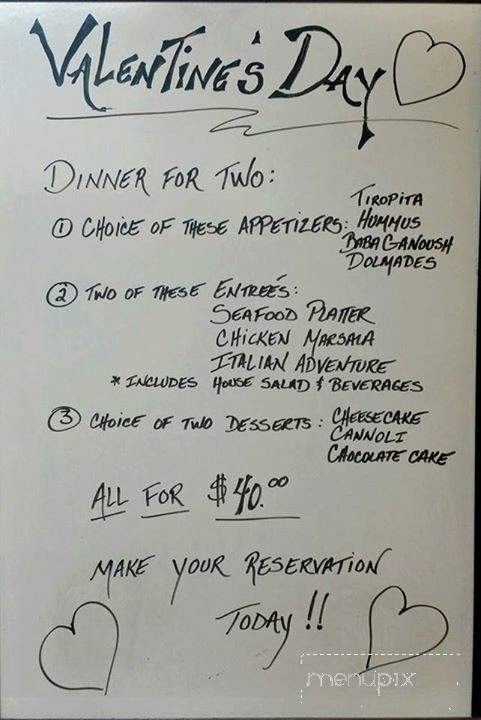 VALENTINE'S DAY
DINNER FOR TWO:
① CHOICE OF THESE APPETIZERS: TIROPITA
HUMMUS
BABA GANOUSH
DOLMADES
② TWO OF THESE ENTREÉS:
SEAFOOD PLATTER
CHICKEN MARSALA
ITALIAN ADVENTURE
* INCLUDES HOUSE SALAD & BEVERAGES
③ CHOICE OF TWO DESSERTS: CHEESECAKE
CANNOLI
CHOCOLATE CAKE
ALL FOR $40.00
MAKE YOUR RESERVATION
TODAY!!
menupix